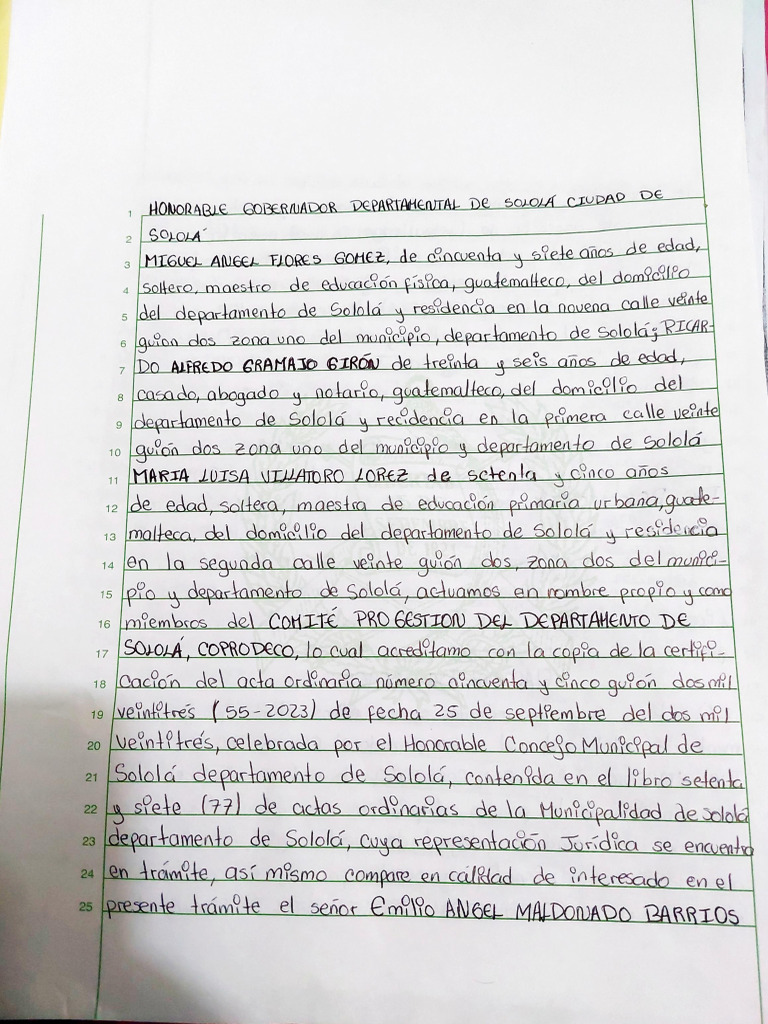 1 HONORABLE GOBERNADOR DEPARTAMENTAL DE SOLOLÁ CIUDAD DE
2 SOLOLÁ
3 MIGUEL ANGEL FLORES GOMEZ, de cincuenta y siete años de edad,
4 soltero, maestro de educación física, guatemalteco, del domicilio
5 del departamento de Sololá y residencia en la novena calle veinte
6 guion dos zona uno del municipio, departamento de Sololá; RICAR-
7 DO ALFREDO GRAMAJO GIRÓN de treinta y seis años de edad,
8 casado, abogado y notario, guatemalteco, del domicilio del
9 departamento de Sololá y recidencia en la primera calle veinte
10 guión dos zona uno del municipio y departamento de Sololá
11 MARIA LUISA VILLATORO LOREZ de setenta y cinco años
12 de edad, soltera, maestra de educación primaria urbana, guate-
13 malteca, del domicilio del departamento de Sololá y residencia
14 en la segunda calle veinte guión dos, zona dos del munici-
15 pio y departamento de Sololá, actuamos en nombre propio y como
16 miembros del COMITÉ PRO GESTION DEL DEPARTAMENTO DE
17 SOLOLÁ, COPRODECO, lo cual acreditamo con la copia de la certifi-
18 cación del acta ordinaria número cincuenta y cinco guión dos mil
19 veintitrés (55-2023) de fecha 25 de septiembre del dos mil
20 veintitrés, celebrada por el Honorable Concejo Municipal de
21 Sololá departamento de Sololá, contenida en el libro setenta
22 y siete (77) de actas ordinarias de la Municipalidad de sololá
23 departamento de Sololá, cuya representación Jurídica se encuentra
24 en trámite, así mismo compare en calidad de interesado en el
25 presente trámite el señor Emilio ANGEL MALDONADO BARRIOS